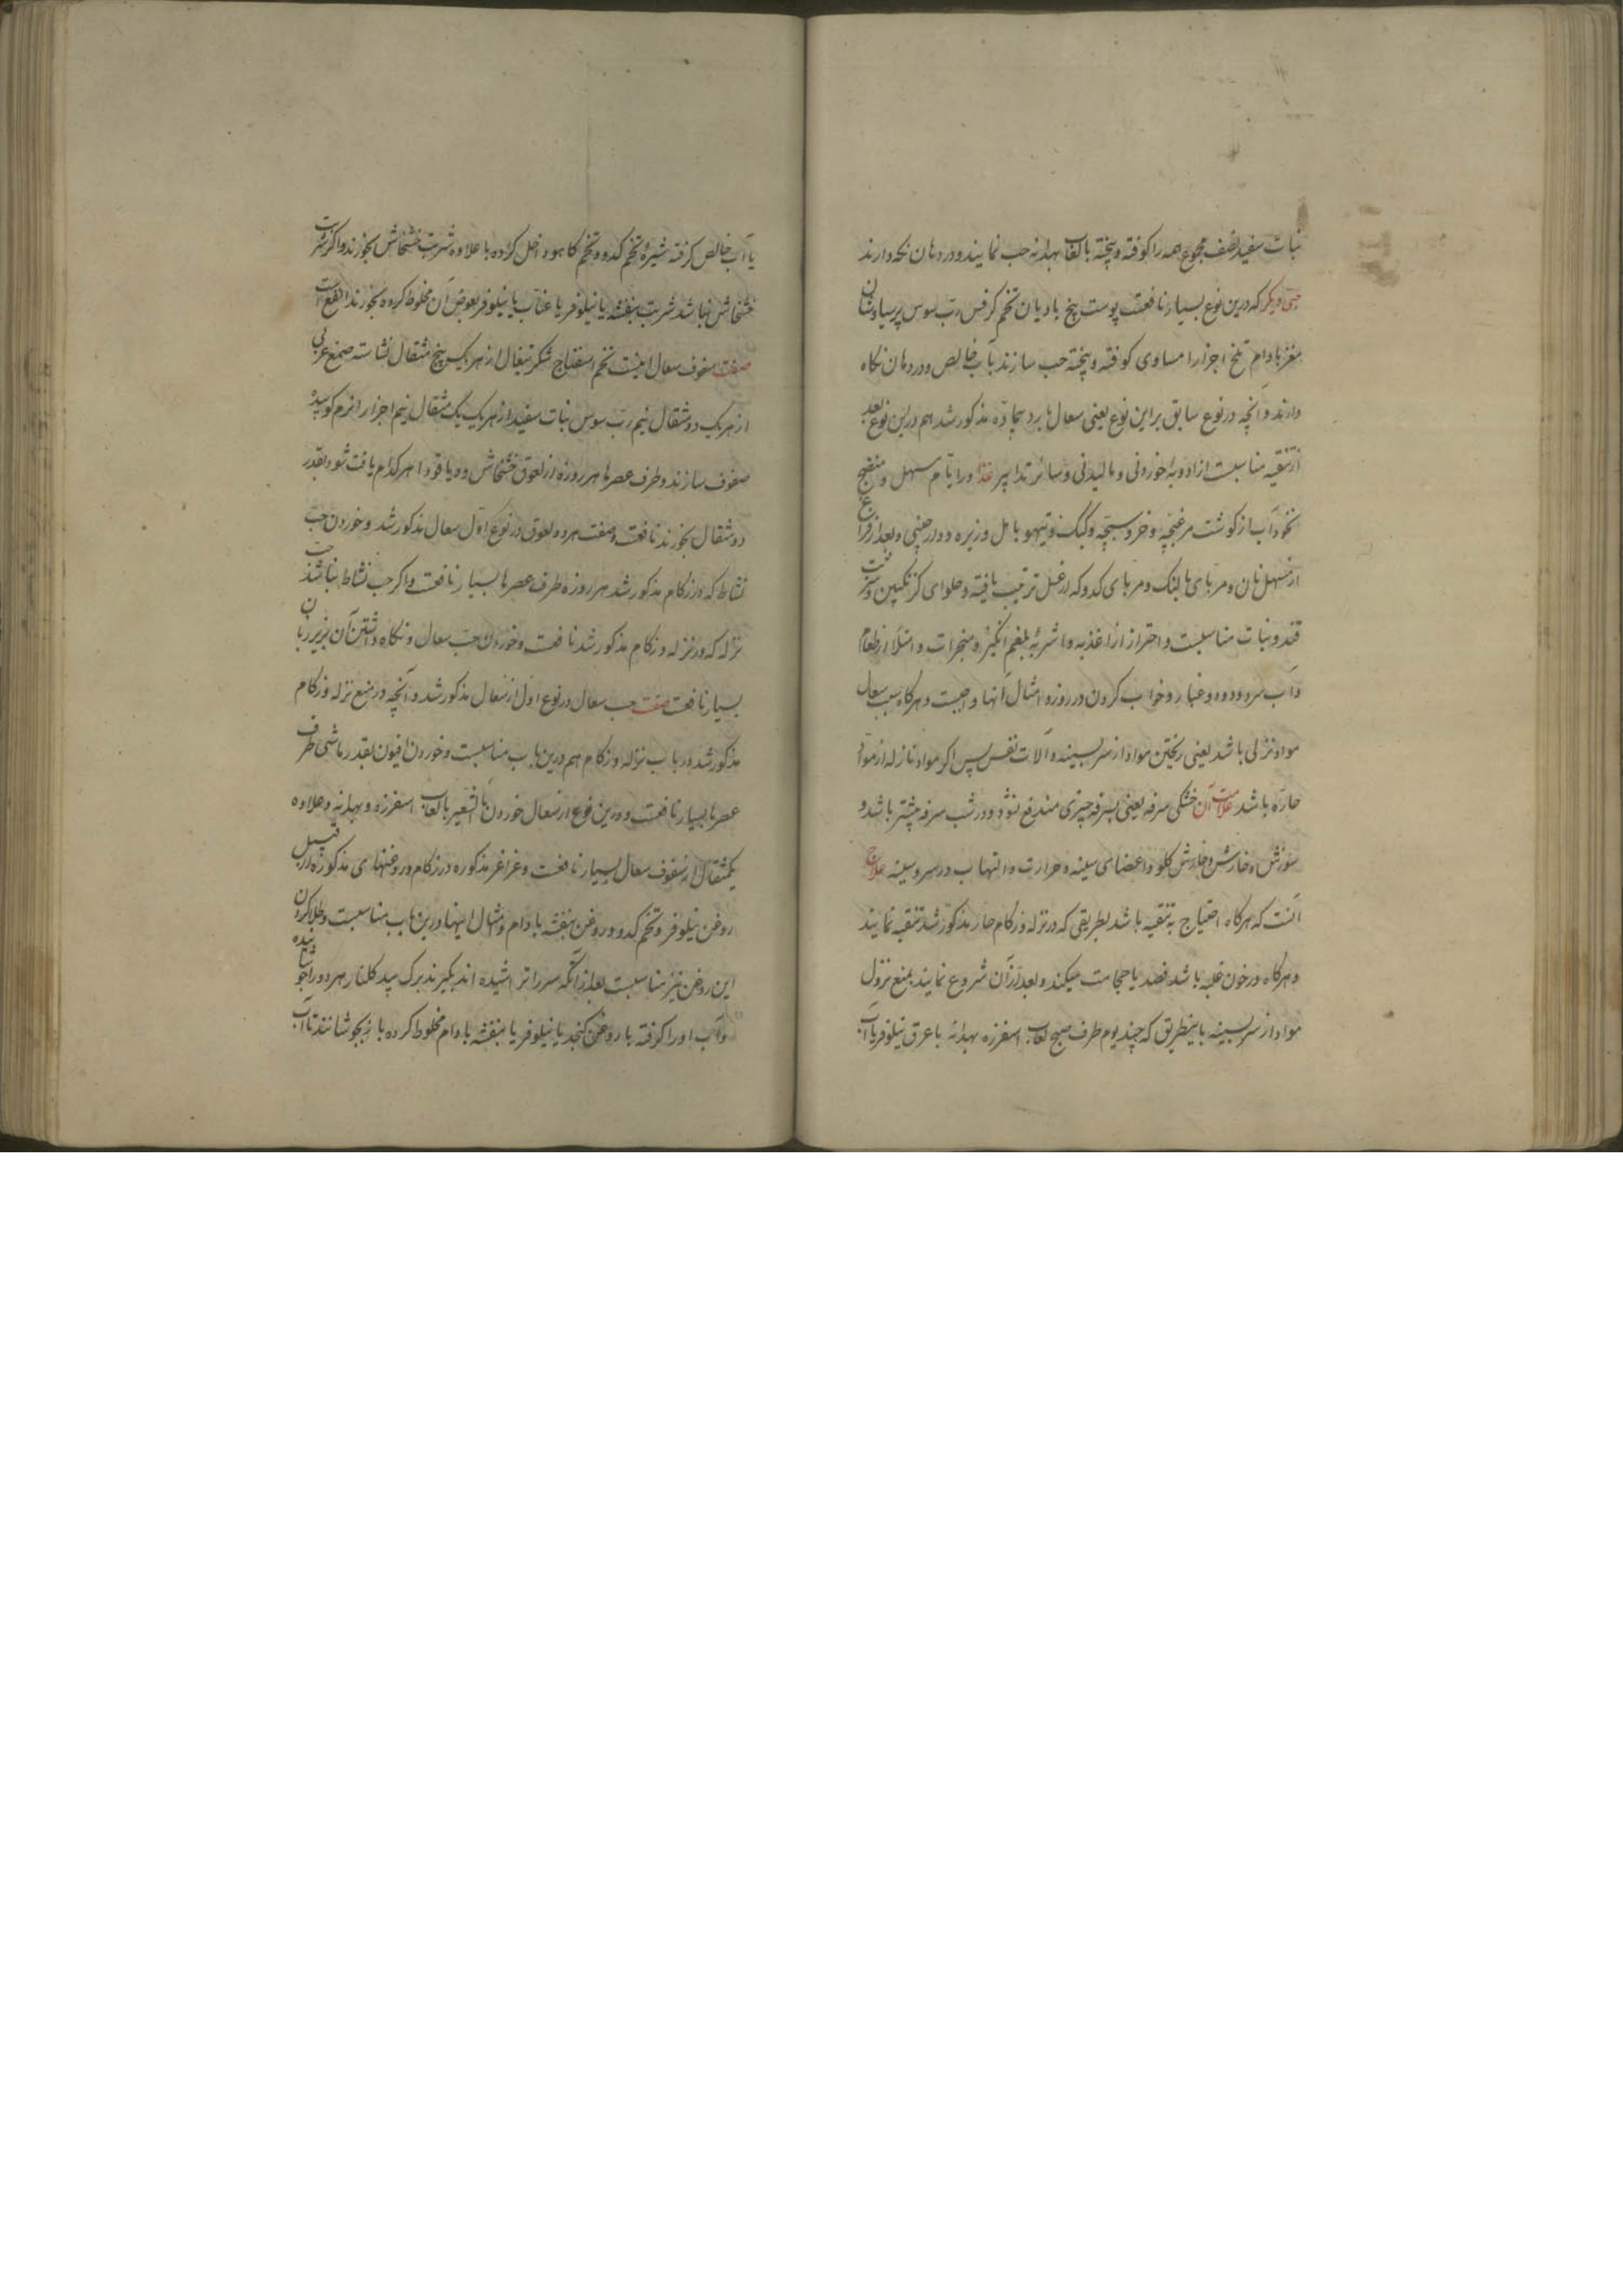 نبات سفید نصف مجموع همه را کوفته و پخته بالعاب بهدانه حب نمایند و در دهان نکه دارند
حبی دیکر که درین نوع بسیار نافعست پوست بیخ بادیان تخم کرفس رب سوس پرسیاوشان
مغز بادام تلخ اجزا را مساوی کوفته و پخته حب سازند بآب خالص و در دهان نکاه
دارند و آنچه در نوع سابق براین نوع یعنی سعال بارد بیماده مذکور شد هم درین نوع بعد
از تنقیه مناسبست از ادویهٔ خوردنی و مالیدنی و سائر تدابیر غذا در ایام مسهل و منضج
نخودآب از کوشت مرغبچه و خروسبچه و کبک و تیهو با هل و زیره و دارچینی و بعد از فراغ
از مسهل نان و مربای بالنک و مربای کدو که از عسل ترتیب یافته و حلوای کزنکبین و شربت
قند و نبات مناسبست و احتراز از اغذیه و اشربهٔ بلغم انکیز و مبخرات و امتلا از طعام
و آب سرد و دود و غبار و خواب کردن در روز و امثال آنها واجبست و هرکاه سبب سعال
مواد نزلی باشد یعنی ریختن مواد از سر بسینه و آلات نفس پس اکر مواد نازله از مواد
حاره باشد علامت آن خشکی سرفه یعنی بسرفه چیزی مندفع نشود و در شب سرفه بیشتر باشد و
سوزش و خارش و خلش کلو و اعضای سینه و حرارت و التهاب در سر و سینه علاج
آنست که هرکاه احتیاج به تنقیه باشد بطریقی که در نزله و زکام حار مذکور شد تنقیه نمایند
و هرکاه در خون غلبه باشد فصد یا حجامت میکند و بعد از آن شروع نمایند بمنع نزول
مواد از سر بسینه باینطریق که چند یوم طرف صبح لعاب اسفرزه بهدانه با عرق نیلوفر یا آب
یا آب خالص کرفته شیرهٔ تخم کدو و تخم کاهو داخل کرده با علاوه شربت خشخاش بخورند و اکر شربت
خشخاش نباشد شربت بنفشه یا نیلوفر یا عناب یا نیلوفر بعوض آن مخلوط کرده بخورند انفع است
صفت سفوف سعال اینست تخم اسفناج شکر تیغال از هر یک پنج مثقال نشاسته صمغ عربی
از هر یک دو مثقال نیم رب سوس نبات سفید از هر یک یک مثقال نیم اجزا را نرم کوبیده
صفوف سازند و طرف عصرها هر روزه از لعوق خشخاش و دیاقودا هر کدام یافت شود بقدر
دو مثقال بخورند نافعست و صفت هر دو لعوق در نوع اول سعال مذکور شد و خوردن حب
نشاط که در زکام مذکور شد هر روزه طرف عصرها بسیار نافعست و اکر حب نشاط نباشد حب
نزله که در نزله و زکام مذکور شد نافعست و خوردن حب سعال و نکاه داشتن آن بزیر زبان
بسیار نافعست صفت حب سعال در نوع اول از سعال مذکور شد و آنچه در منع نزله و زکام
مذکور شد در باب نزله و زکام هم درین باب مناسبست و خوردن افیون بقدر ماشی طرف
عصر بسیار نافعست و درین نوع از سعال خوردن ماءالشعیر بالعاب اسفرزه و بهدانه و علاوه
یکمثقال از سفوف سعال بسیار نافعست و غراغر مذکوره در زکام و روغنهای مذکوره از قبیل
روغن نیلوفر و تخم کدو و روغن بنفشه بادام و امثال اینها درین باب مناسبست و طلا کردن
این روغن نیز مناسبست بعد از آنکه سر را تراشیده اند بکیرند برک بید کلنار هر دو را جوشانیده
و آب او را کرفته با روغن کنجد یا نیلوفر یا بنفشه بادام مخلوط کرده باز بجوشانند تا آب